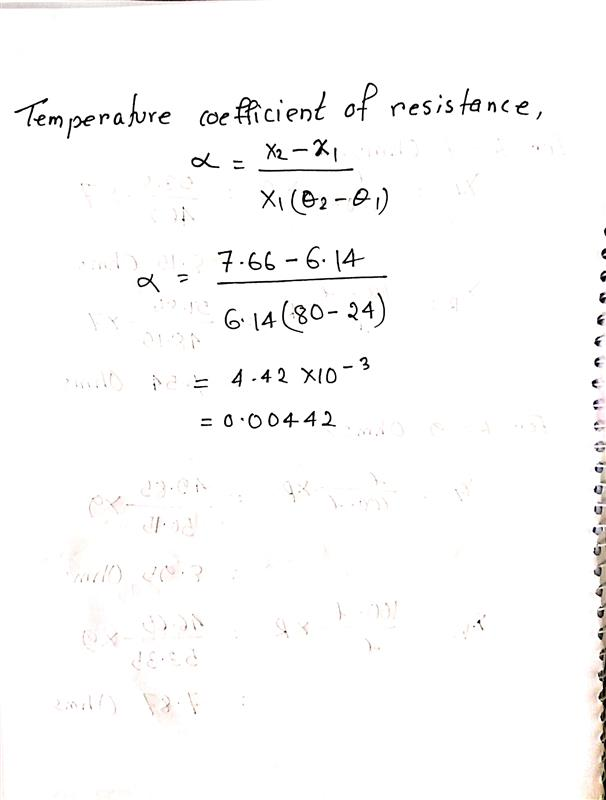 Temperature coefficient of resistance,
α = x2 - x1 / x1 (θ2 - θ1)
α = 7.66 - 6.14 / 6.14 (80 - 24)
= 4.42 x10⁻³
= 0.00442